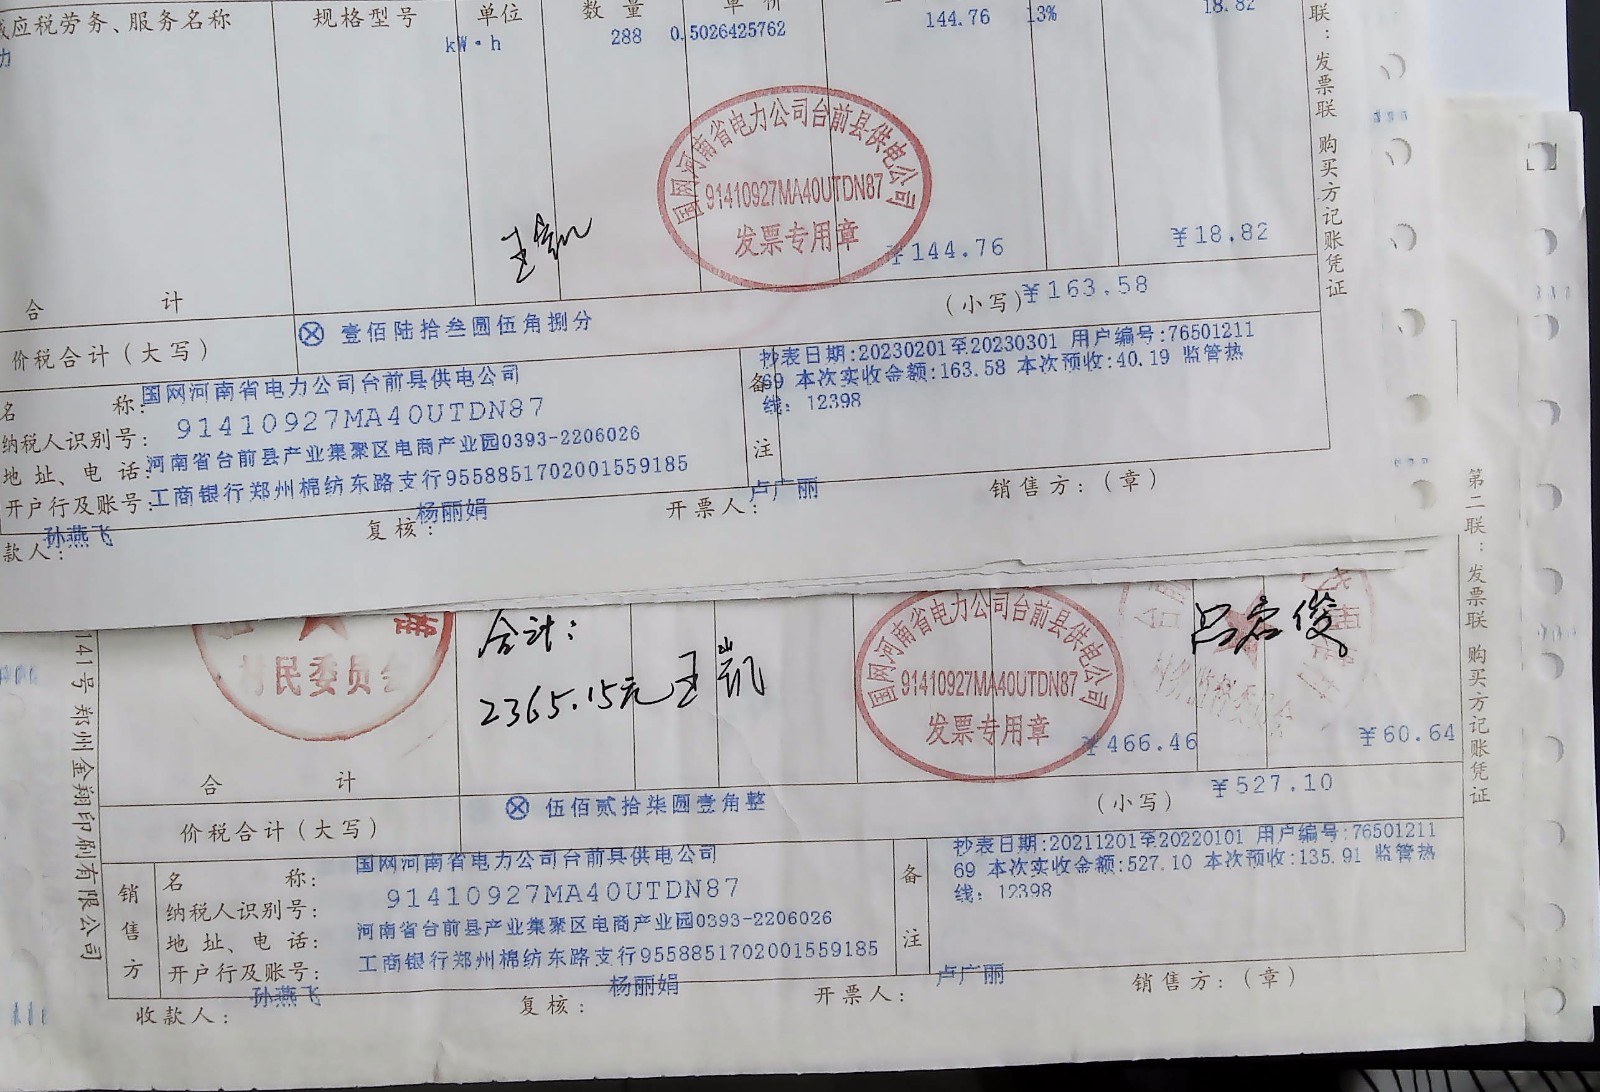 应税劳务、服务名称 规格型号 单位 数量 单价 144.76 13% 18.82
力 kW·h 288 0.5026425762
国网河南省电力公司台前县供电公司
91410927MA40UTDN87
发票专用章
¥144.76 ¥18.82
合计
价税合计(大写) ⊗ 壹佰陆拾叁圆伍角捌分 (小写)¥163.58
名称: 国网河南省电力公司台前县供电公司
纳税人识别号: 91410927MA40UTDN87
地址、电话: 河南省台前县产业集聚区电商产业园0393-2206026
开户行及账号: 工商银行郑州棉纺东路支行9558851702001559185
备注
抄表日期:20230201至20230301 用户编号:76501211
69 本次实收金额:163.58 本次预收:40.19 监管热
线: 12398
款人: 孙燕飞 复核: 杨丽娟 开票人: 卢广丽 销售方:(章)
联:发票联 购买方记账凭证
村民委员会
合计:
2365.15元 王凯
国网河南省电力公司台前县供电公司
91410927MA40UTDN87
发票专用章
吕启俊
¥466.46 ¥60.64
合计
价税合计(大写) ⊗ 伍佰贰拾柒圆壹角整 (小写) ¥527.10
销售方
名称: 国网河南省电力公司台前县供电公司
纳税人识别号: 91410927MA40UTDN87
地址、电话: 河南省台前县产业集聚区电商产业园0393-2206026
开户行及账号: 工商银行郑州棉纺东路支行9558851702001559185
备注
抄表日期:20211201至20220101 用户编号:76501211
69 本次实收金额:527.10 本次预收:135.91 监管热
线: 12398
收款人: 孙燕飞 复核: 杨丽娟 开票人: 卢广丽 销售方:(章)
第二联:发票联 购买方记账凭证
141号郑州金翔印刷有限公司